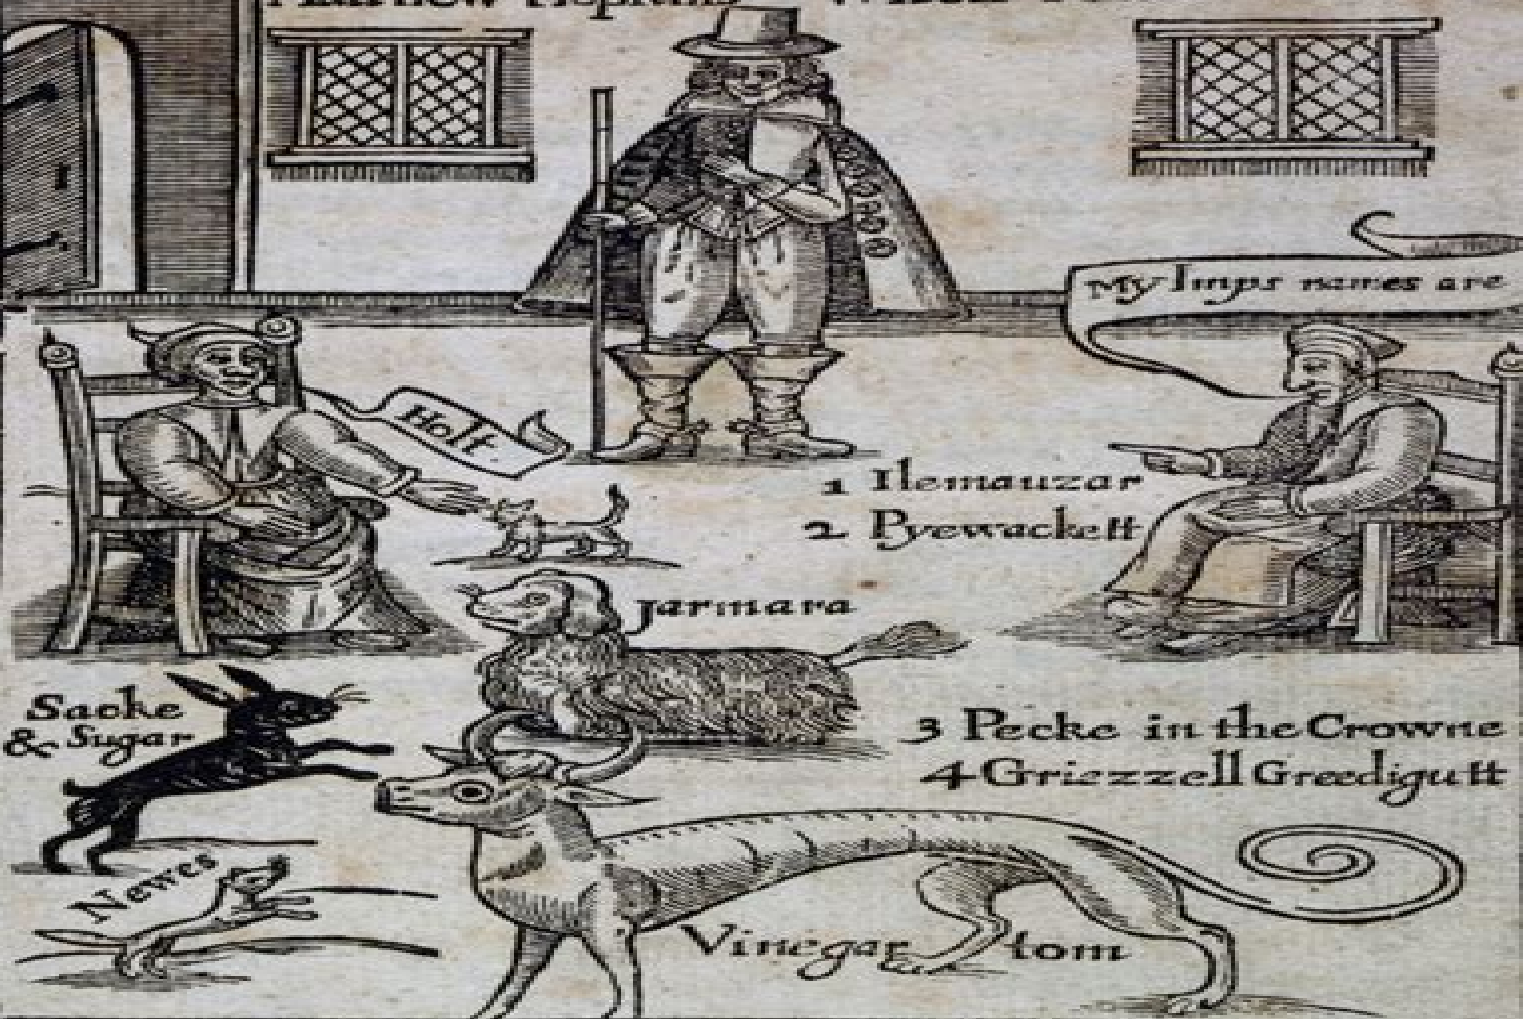 My Imps names are
Holt
1 Ilemauzar
2 Pyewackett
Jarmara
Sacke
& Sugar
3 Pecke in the Crowne
4 Griezzell Greedigutt
Newes
Vinegar tom